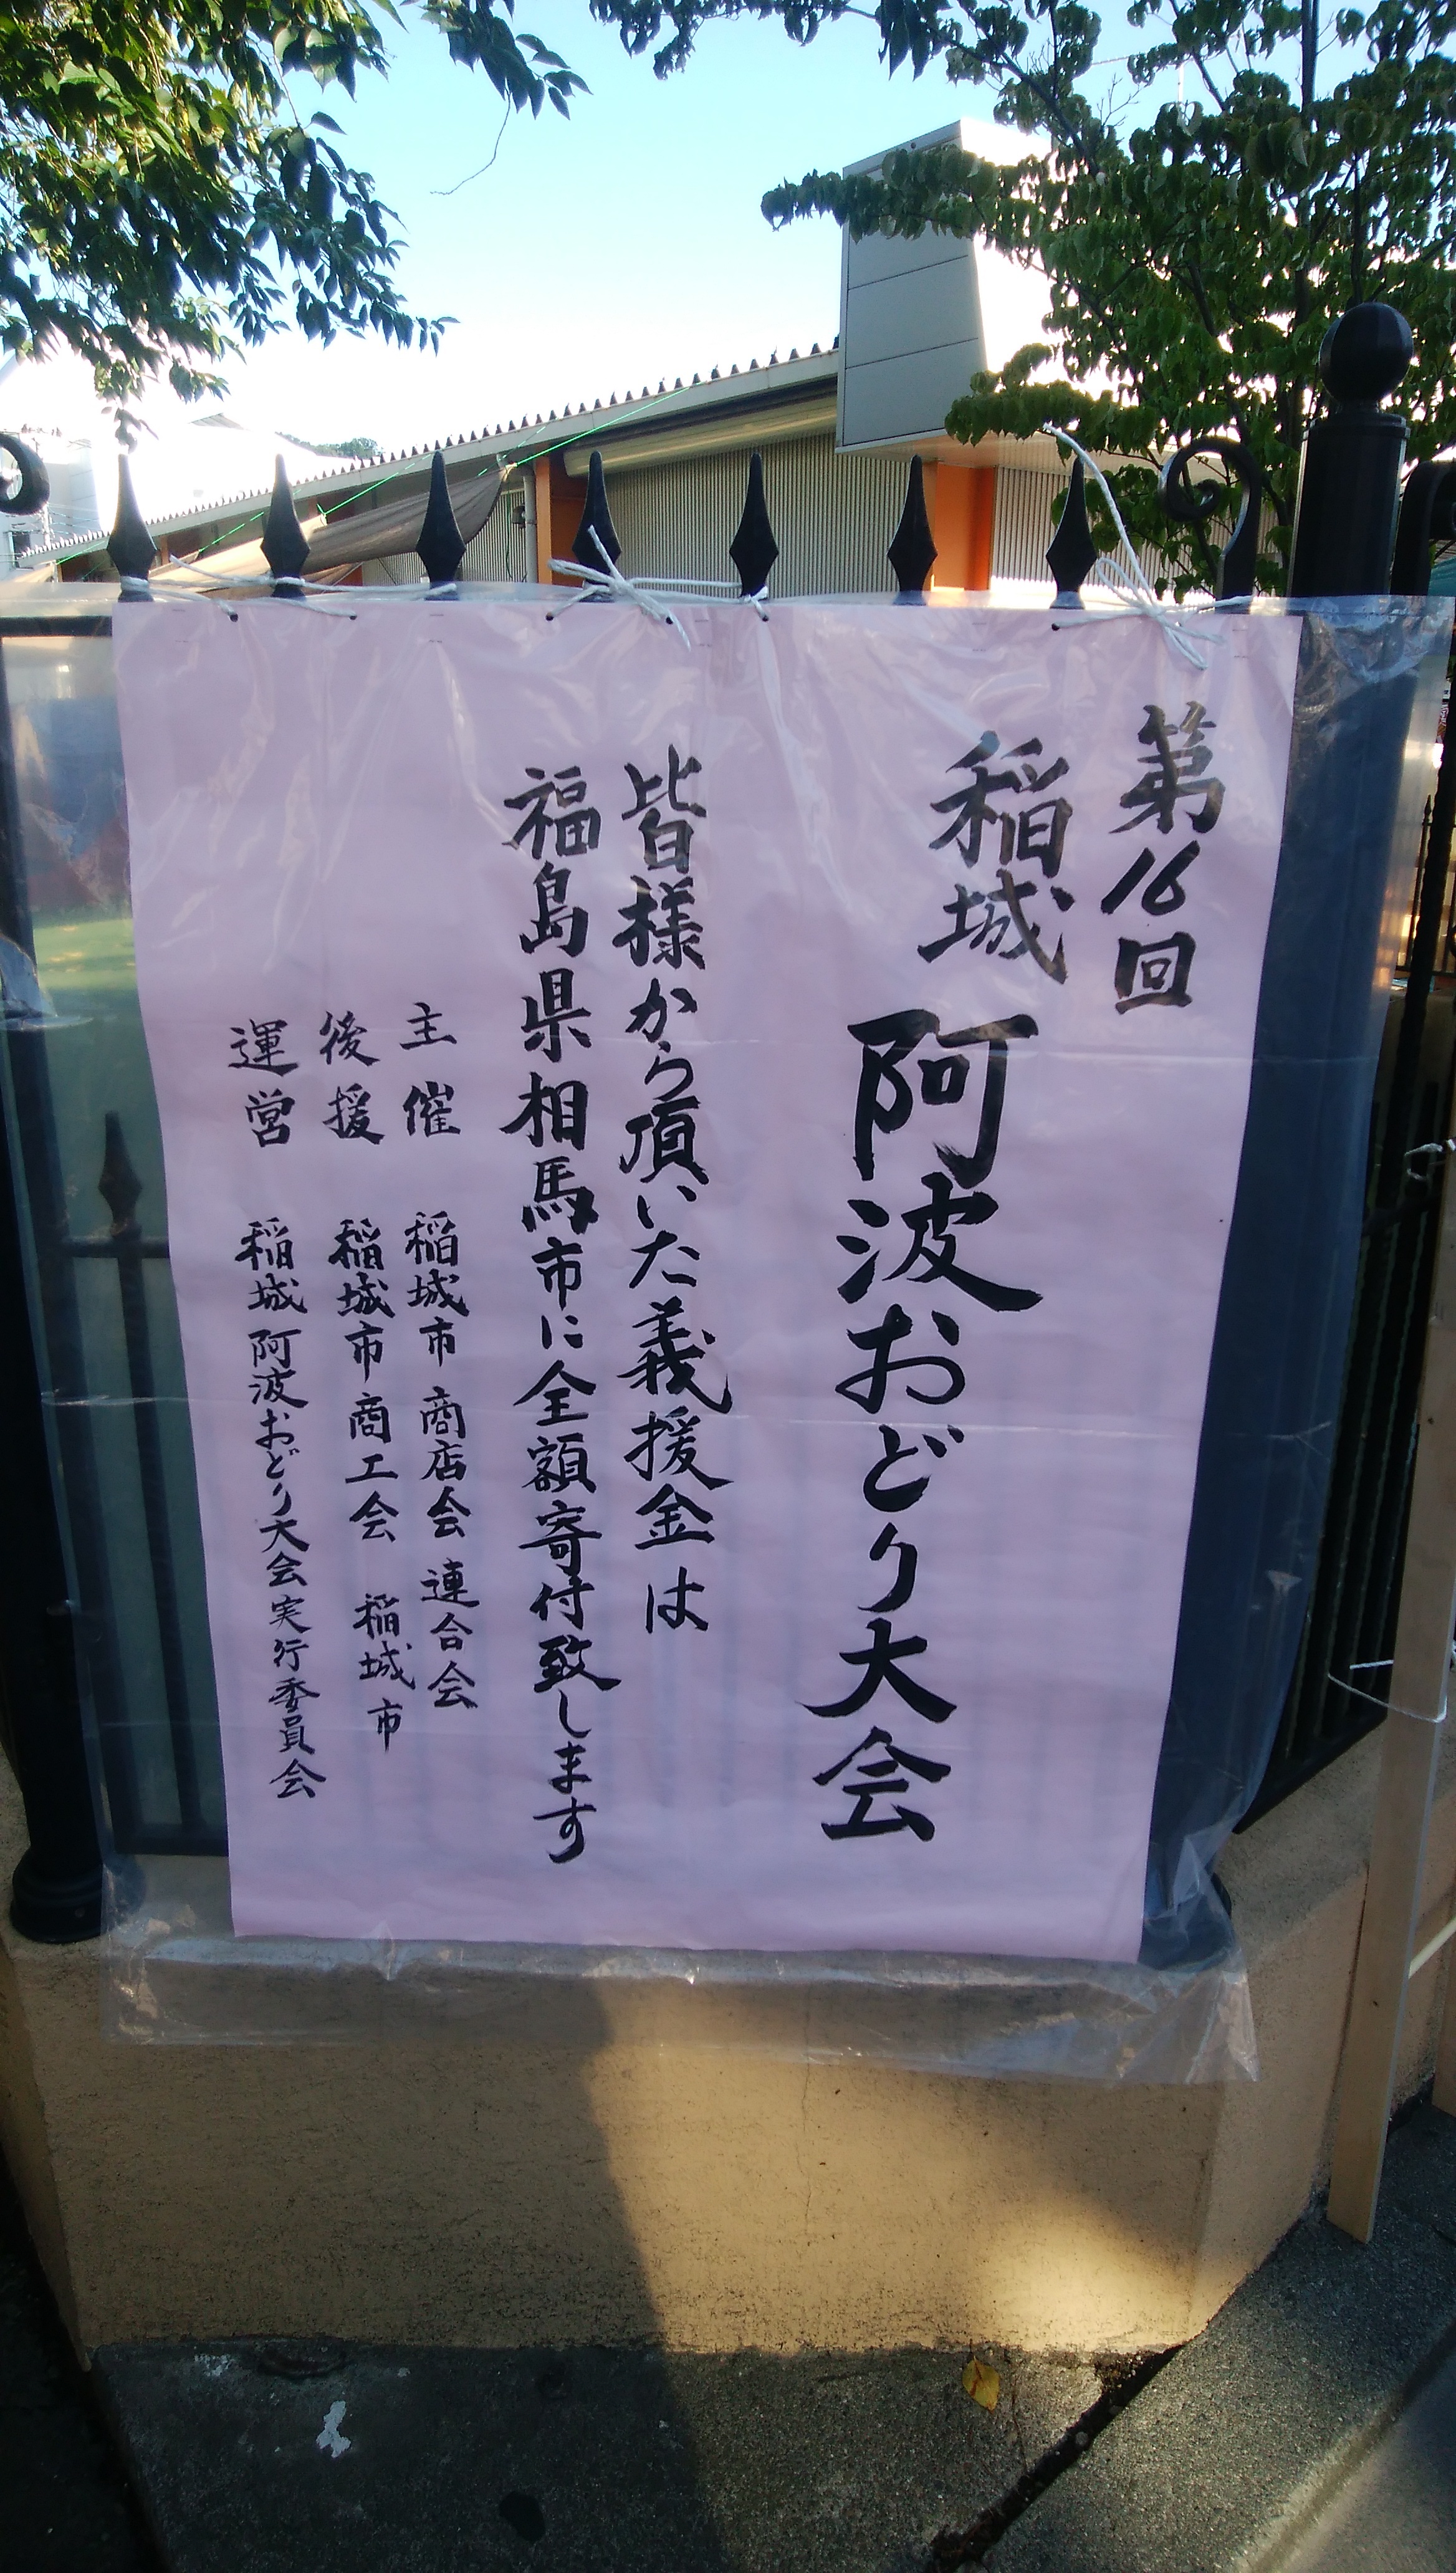 第16回
稲城 阿波おどり大会
皆様から頂いた義援金は
福島県相馬市に全額寄付致します
主催 稲城市商店会連合会
後援 稲城市商工会 稲城市
運営 稲城阿波おどり大会実行委員会